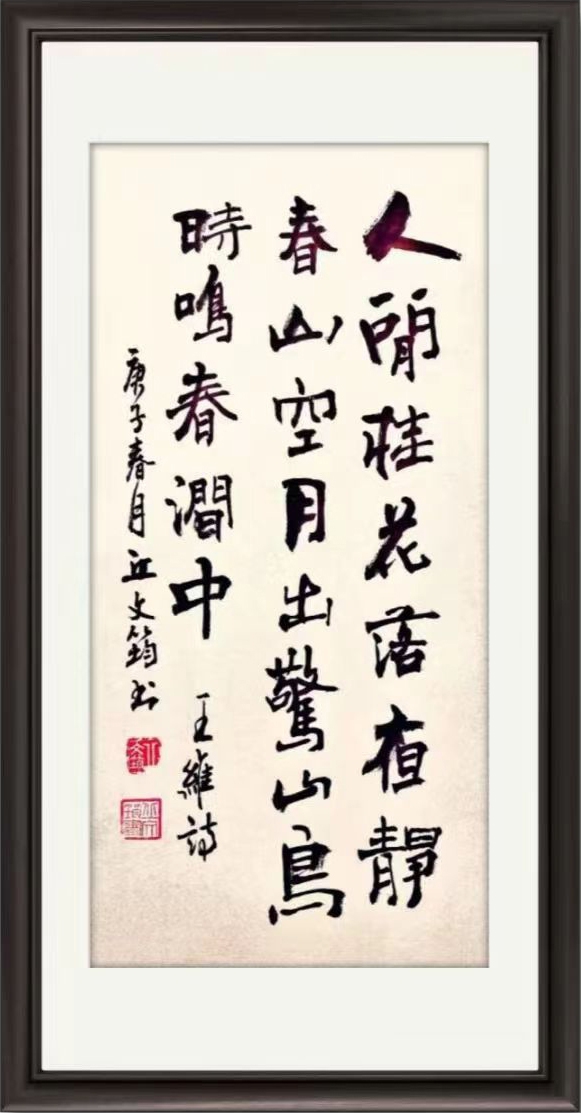 人閒桂花落夜靜
春山空月出驚山鳥
時鳴春澗中 王維詩
庚子春月丘文筠书